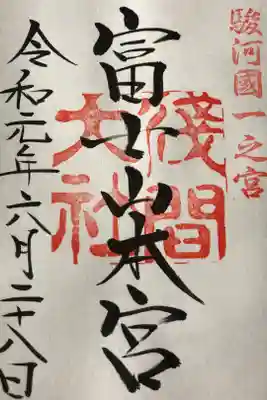 駿河國一之宮
富士山本宮
淺間大社
令和元年六月二十八日